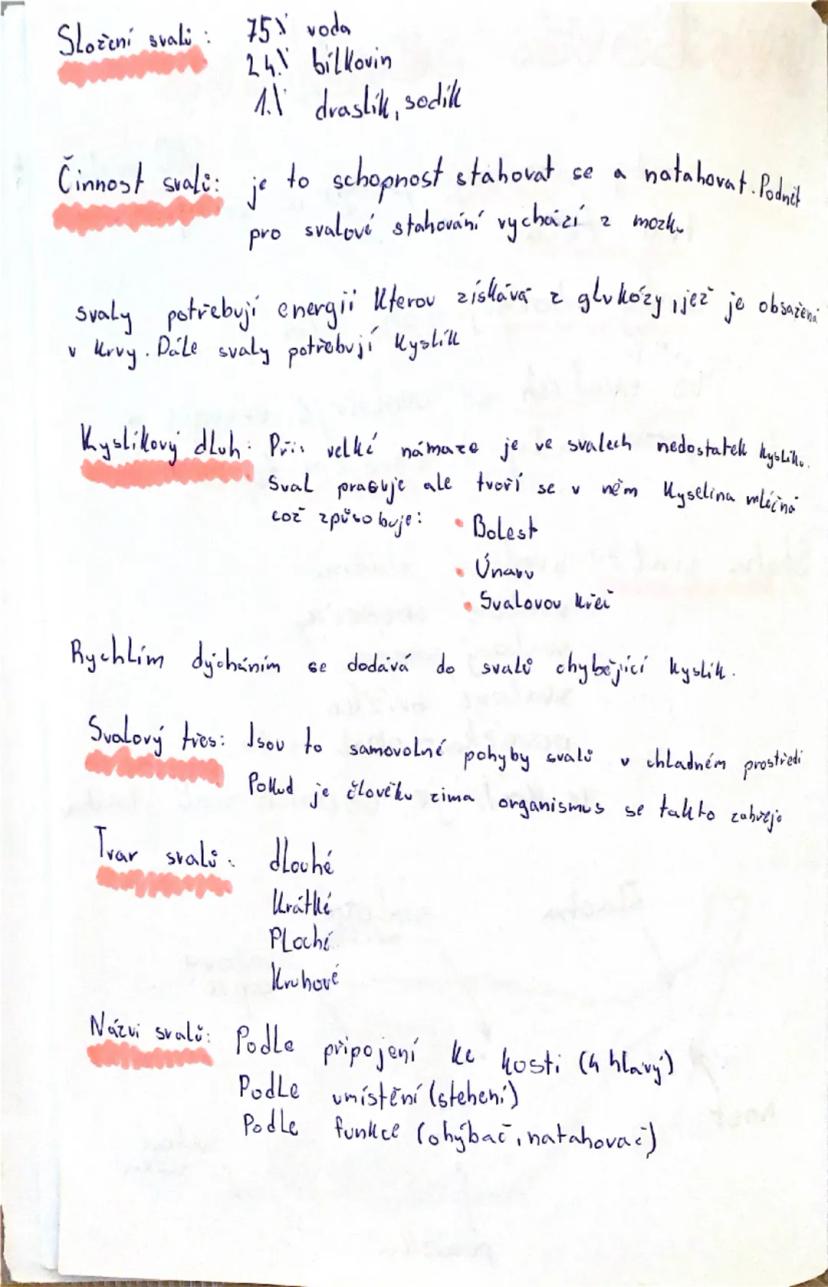 Složení svalů: 75% voda
24% bílkovin
1% draslík, sodík
Činnost svalů: je to schopnost stahovat se a natahovat. Podnět
pro svalové stahování vychází z mozku
svaly potřebují energii kterou získává z glukózy, jež je obsažená
v krvy. Dále svaly potřebují kyslík
Kyslíkový dluh: Při velké námaze je ve svalech nedostatek kyslíku.
Sval pracuje ale tvoří se v něm kyselina mléčná
což způsobuje: • Bolest
• Únavu
• Svalovou křeč
Rychlím dýcháním se dodává do svalů chybějící kyslík.
Svalový třes: Jsou to samovolné pohyby svalů v chladném prostředí
Pokud je člověku zima organismus se takto zahřeje
Tvar svalů: dlouhé
Krátké
Ploché
Kruhové
Názvi svalů: Podle připojení ke kosti (4 hlavý)
Podle umístění (stehení)
Podle funkce (ohýbač, natahovač)